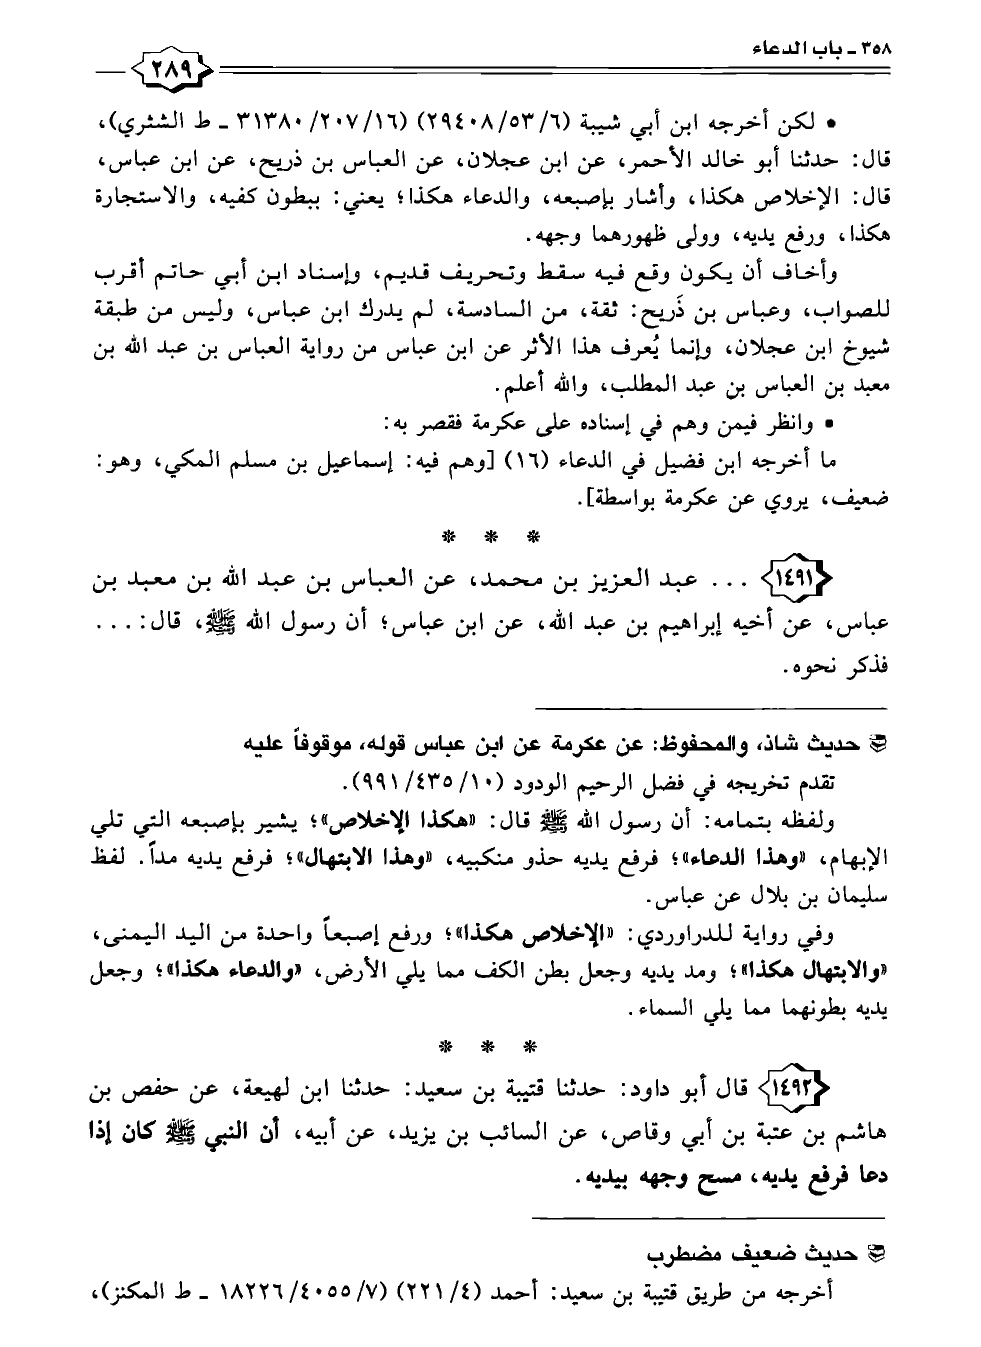 ٣٥٨ ـ باب الدعاء
٢٨٩
• لكن أخرجه ابن أبي شيبة (٦/ ٥٣/ ٢٩٤٠٨) (١٦/ ٢٠٧/ ٣١٣٨٠ ـ ط الشثري)،
قال: حدثنا أبو خالد الأحمر، عن ابن عجلان، عن العباس بن ذريح، عن ابن عباس،
قال: الإخلاص هكذا، وأشار بإصبعه، والدعاء هكذا؛ يعني: ببطون كفيه، والاستجارة
هكذا، ورفع يديه، وولى ظهورهما وجهه.
وأخاف أن يكون وقع فيه سقط وتحريف قديم، وإسناد ابن أبي حاتم أقرب
للصواب، وعباس بن ذَريح: ثقة، من السادسة، لم يدرك ابن عباس، وليس من طبقة
شيوخ ابن عجلان، وإنما يُعرف هذا الأثر عن ابن عباس من رواية العباس بن عبد الله بن
معبد بن العباس بن عبد المطلب، والله أعلم.
▪ وانظر فيمن وهم في إسناده على عكرمة فقصر به:
ما أخرجه ابن فضيل في الدعاء (١٦) [وهم فيه: إسماعيل بن مسلم المكي، وهو:
ضعيف، يروي عن عكرمة بواسطة].
* * *
١٤٩١ ... عبد العزيز بن محمد، عن العباس بن عبد الله بن معبد بن
عباس، عن أخيه إبراهيم بن عبد الله، عن ابن عباس؛ أن رسول الله ﷺ، قال: ...
فذكر نحوه.
حديث شاذ، والمحفوظ: عن عكرمة عن ابن عباس قوله، موقوفاً عليه
تقدم تخريجه في فضل الرحيم الودود (١٠/ ٤٣٥/ ٩٩١).
ولفظه بتمامه: أن رسول الله ﷺ قال: «هكذا الإخلاص»؛ يشير بإصبعه التي تلي
الإبهام، «وهذا الدعاء»؛ فرفع يديه حذو منكبيه، «وهذا الابتهال»؛ فرفع يديه مداً. لفظ
سليمان بن بلال عن عباس.
وفي رواية للدراوردي: «الإخلاص هكذا»؛ ورفع إصبعاً واحدة من اليد اليمنى،
«والابتهال هكذا»؛ ومد يديه وجعل بطن الكف مما يلي الأرض، «والدعاء هكذا»؛ وجعل
يديه بطونهما مما يلي السماء.
* * *
١٤٩٢ قال أبو داود: حدثنا قتيبة بن سعيد: حدثنا ابن لهيعة، عن حفص بن
هاشم بن عتبة بن أبي وقاص، عن السائب بن يزيد، عن أبيه، أن النبي ﷺ كان إذا
دعا فرفع يديه، مسح وجهه بيديه.
حديث ضعيف مضطرب
أخرجه من طريق قتيبة بن سعيد: أحمد (٤/ ٢٢١) (٧/ ٤٠٥٥/ ١٨٢٢٦ ـ ط المكنز)،